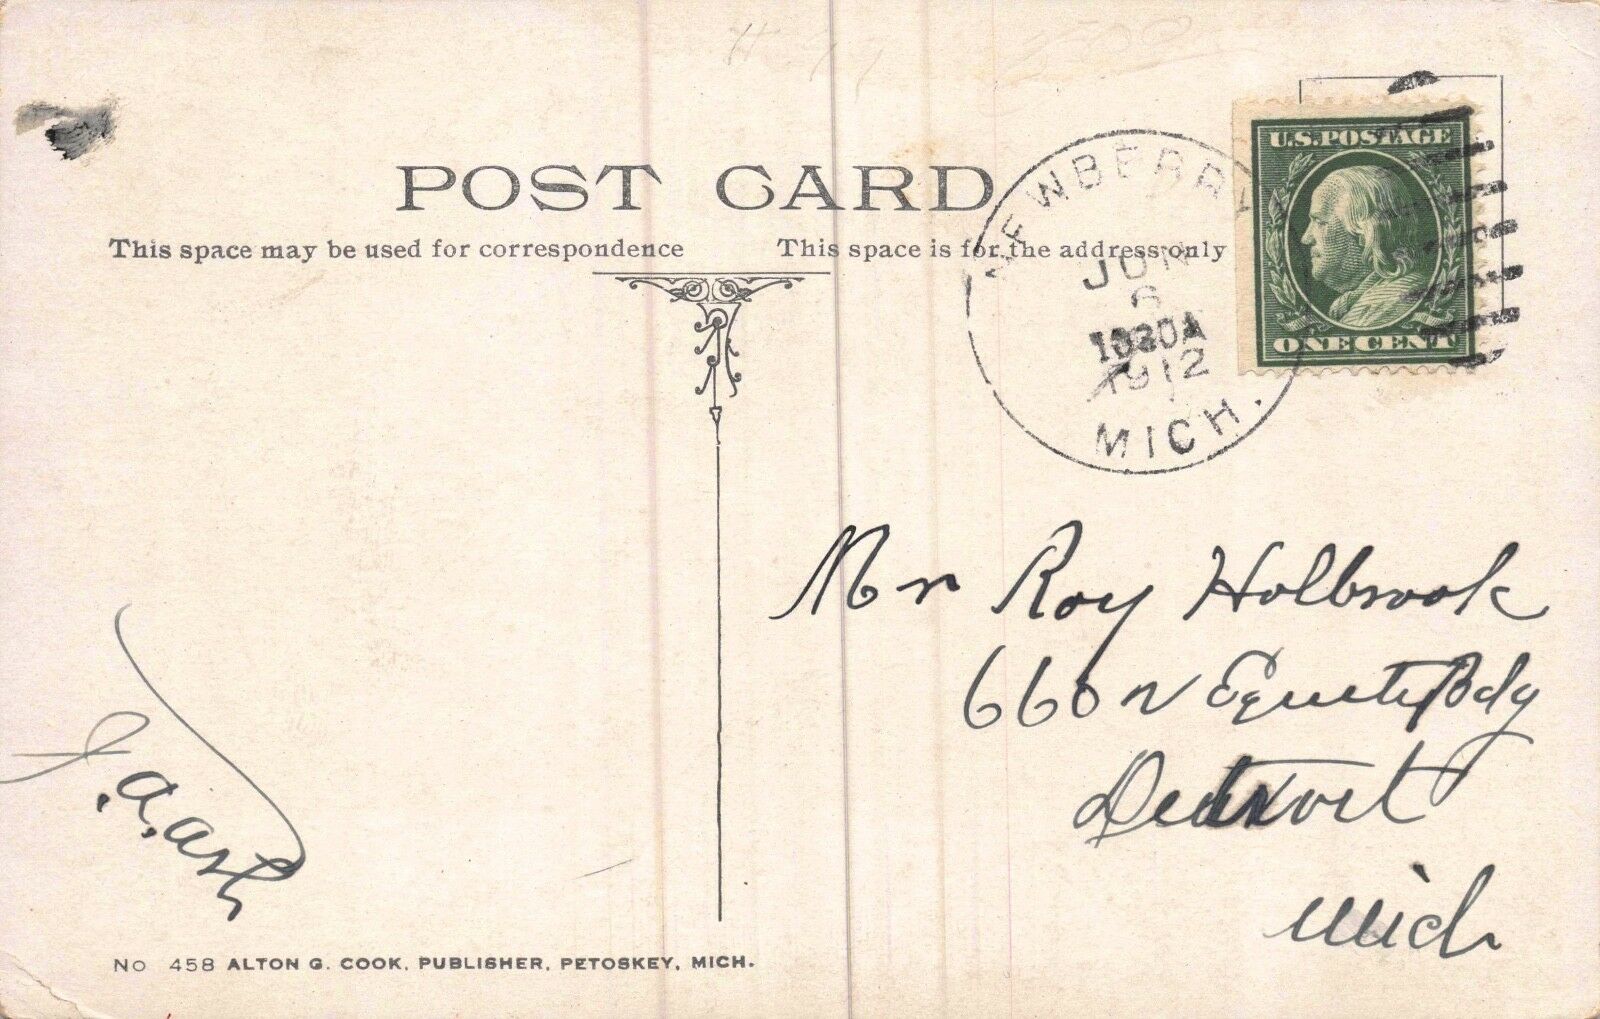 POST CARD
This space may be used for correspondence
This space is for the address only
NEWBERRY
JUN
6
1030A
1912
MICH.
U.S. POSTAGE
ONE CENT
Mr Roy Holbrook
660 N Equity Bdg
Detroit
Mich
J.A. Ash
No 458 ALTON G. COOK, PUBLISHER, PETOSKEY, MICH.